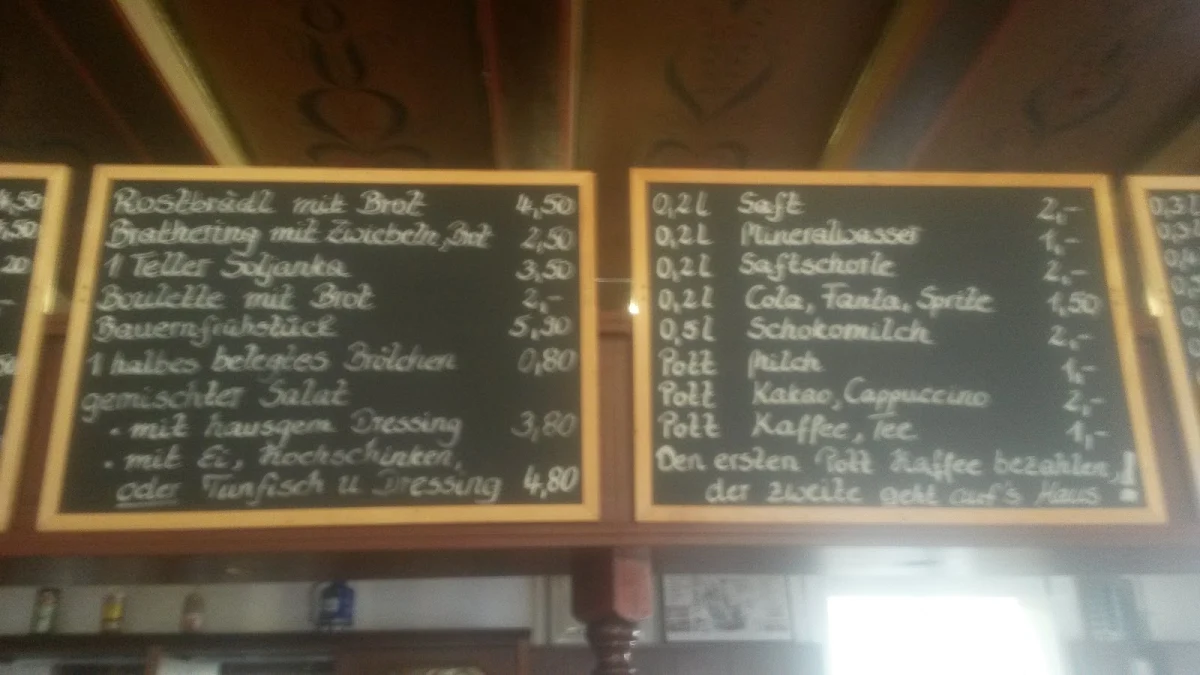 4,50
,50
,20
Rostbrädl mit Brot 4,50
Brathering mit Zwiebeln, Brot 2,50
1 Teller Soljanka 3,50
Boulette mit Brot 2,-
Bauernfrühstück 5,30
1 halbes belegtes Brötchen 0,80
gemischter Salat
• mit hausgem Dressing 3,80
• mit Ei, Kochschinken,
oder Tunfisch u Dressing 4,80
0,2 l Saft 2,-
0,2 l Mineralwasser 1,-
0,2 l Saftschorle 2,-
0,2 l Cola, Fanta, Sprite 1,50
0,5 l Schokomilch 2,-
Pott Milch 1,-
Pott Kakao, Cappuccino 2,-
Pott Kaffee, Tee 1,-
Den ersten Pott Kaffee bezahlen,
der zweite geht auf's Haus!
0,3 l